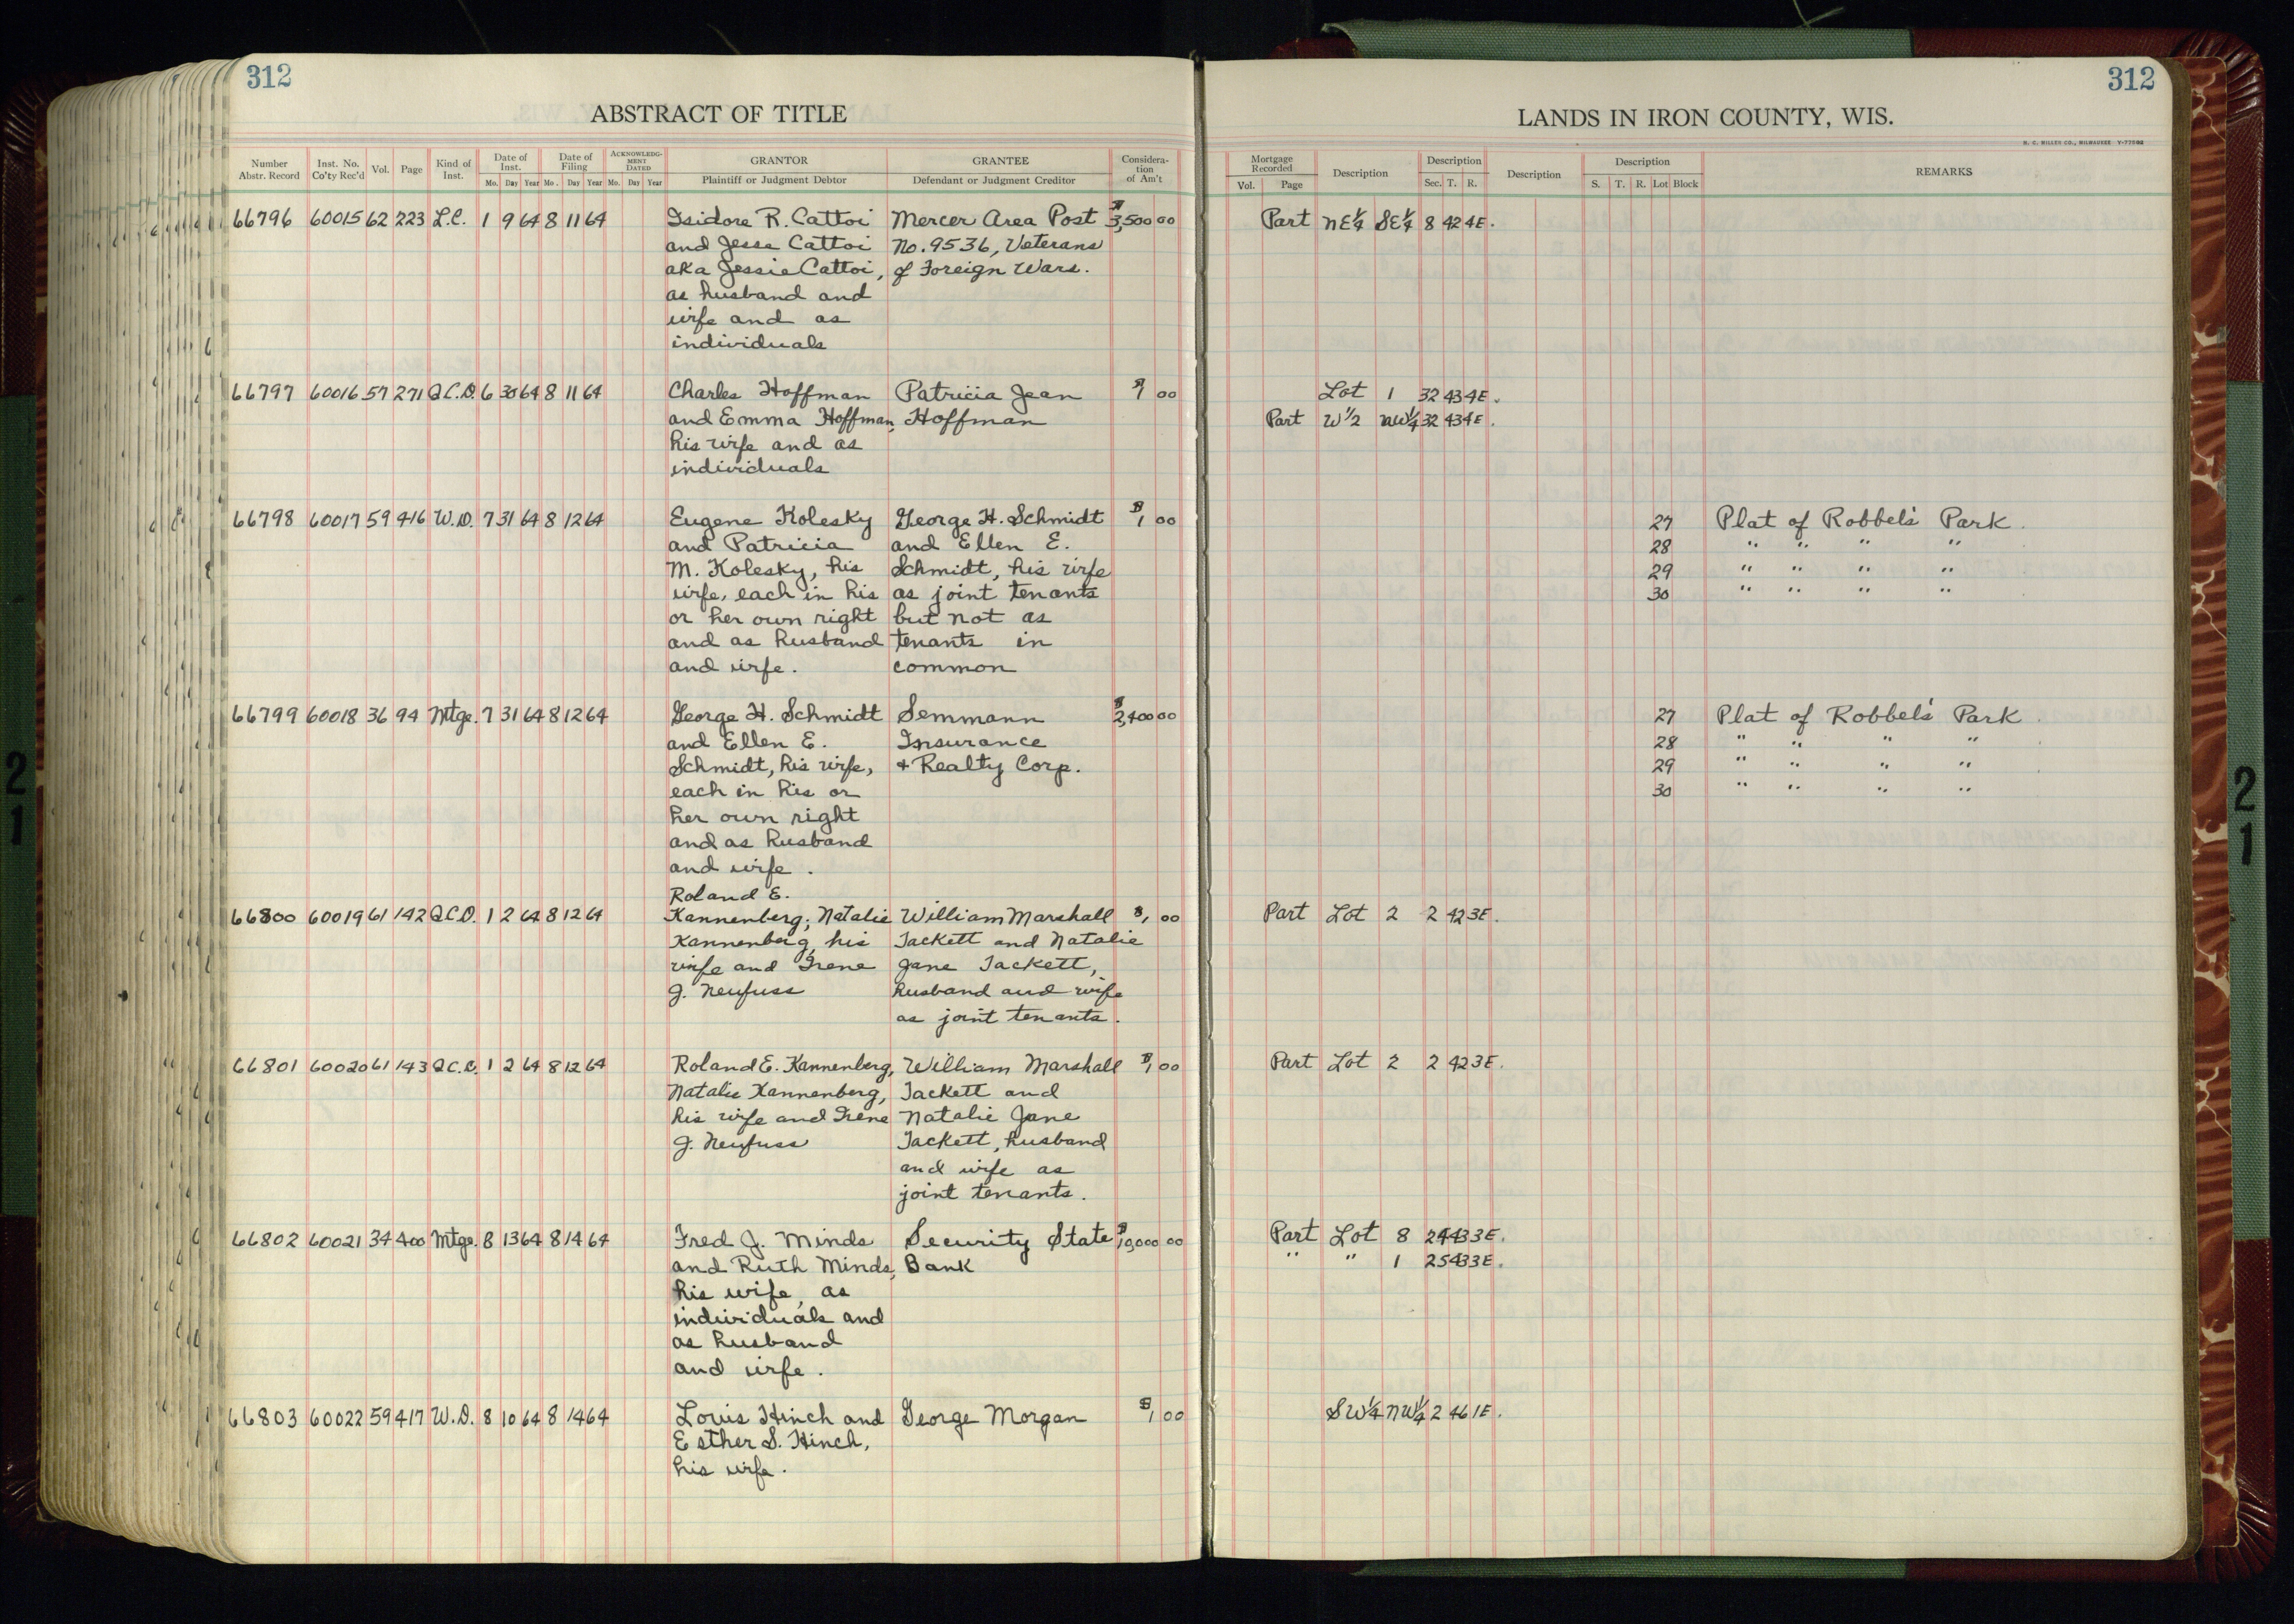 312
312
ABSTRACT OF TITLE
LANDS IN IRON COUNTY, WIS.
H. C. MILLER CO., MILWAUKEE
Number Abstr. Record Inst. No. Co'ty Rec'd Vol. Page Kind of Inst. Date of Inst. Date of Filing ACKNOWLEDGMENT DATED GRANTOR GRANTEE Consideration of Am't Mortgage Recorded Description Description Description Description REMARKS
Mo. Day Year Mo. Day Year Mo. Day Year Plaintiff or Judgment Debtor Defendant or Judgment Creditor Vol. Page Sec. T. R. S. T. R. Lot Block
66796 60015 62 223 L.C. 1 9 64 8 11 64 Isidore R. Cattoi Mercer Area Post $3,500 00 Part NE¼ SE¼ 8 42 4E.
and Jesse Cattoi No. 9536, Veterans
aka Jessie Cattoi, of Foreign Wars.
as husband and
wife and as
individuals
66797 60016 57 271 Q.C.D. 6 30 64 8 11 64 Charles Hoffman Patricia Jean $1 00 Lot 1 32 43 4E.
and Emma Hoffman, Hoffman Part W½ NW¼ 32 43 4E.
his wife and as
individuals
66798 60017 59 416 W.D. 7 31 64 8 12 64 Eugene Kolesky George H. Schmidt $1 00 27 Plat of Robbel's Park.
and Patricia and Ellen E. 28 " " " "
M. Kolesky, his Schmidt, his wife 29 " " " "
wife, each in his as joint tenants 30 " " " "
or her own right but not as
and as husband tenants in
and wife. common
66799 60018 36 94 Mtge. 7 31 64 8 12 64 George H. Schmidt Semmann $2,400 00 27 Plat of Robbel's Park.
and Ellen E. Insurance 28 " " " "
Schmidt, his wife, + Realty Corp. 29 " " " "
each in his or 30 " " " "
her own right
and as husband
and wife.
Roland E.
66800 60019 61 142 Q.C.D. 1 2 64 8 12 64 Kannenberg, Natalie William Marshall $1 00 Part Lot 2 2 42 3E.
Kannenberg, his Tackett and Natalie
wife and Irene Jane Tackett,
J. Neufuss husband and wife
as joint tenants.
66801 60020 61 143 Q.C.D. 1 2 64 8 12 64 Roland E. Kannenberg, William Marshall $1 00 Part Lot 2 2 42 3E.
Natalie Kannenberg, Tackett and
his wife and Irene Natalie Jane
J. Neufuss Tackett, husband
and wife as
joint tenants.
66802 60021 34 400 Mtge. 8 13 64 8 14 64 Fred J. Minds Security State $10,000 00 Part Lot 8 24 43 3E.
and Ruth Minds, Bank " " 1 25 43 3E.
his wife, as
individuals and
as husband
and wife.
66803 60022 59 417 W.D. 8 10 64 8 14 64 Louis Hinch and George Morgan $1 00 SW¼ NW¼ 2 46 1E.
Esther S. Hinch,
his wife.
21
21